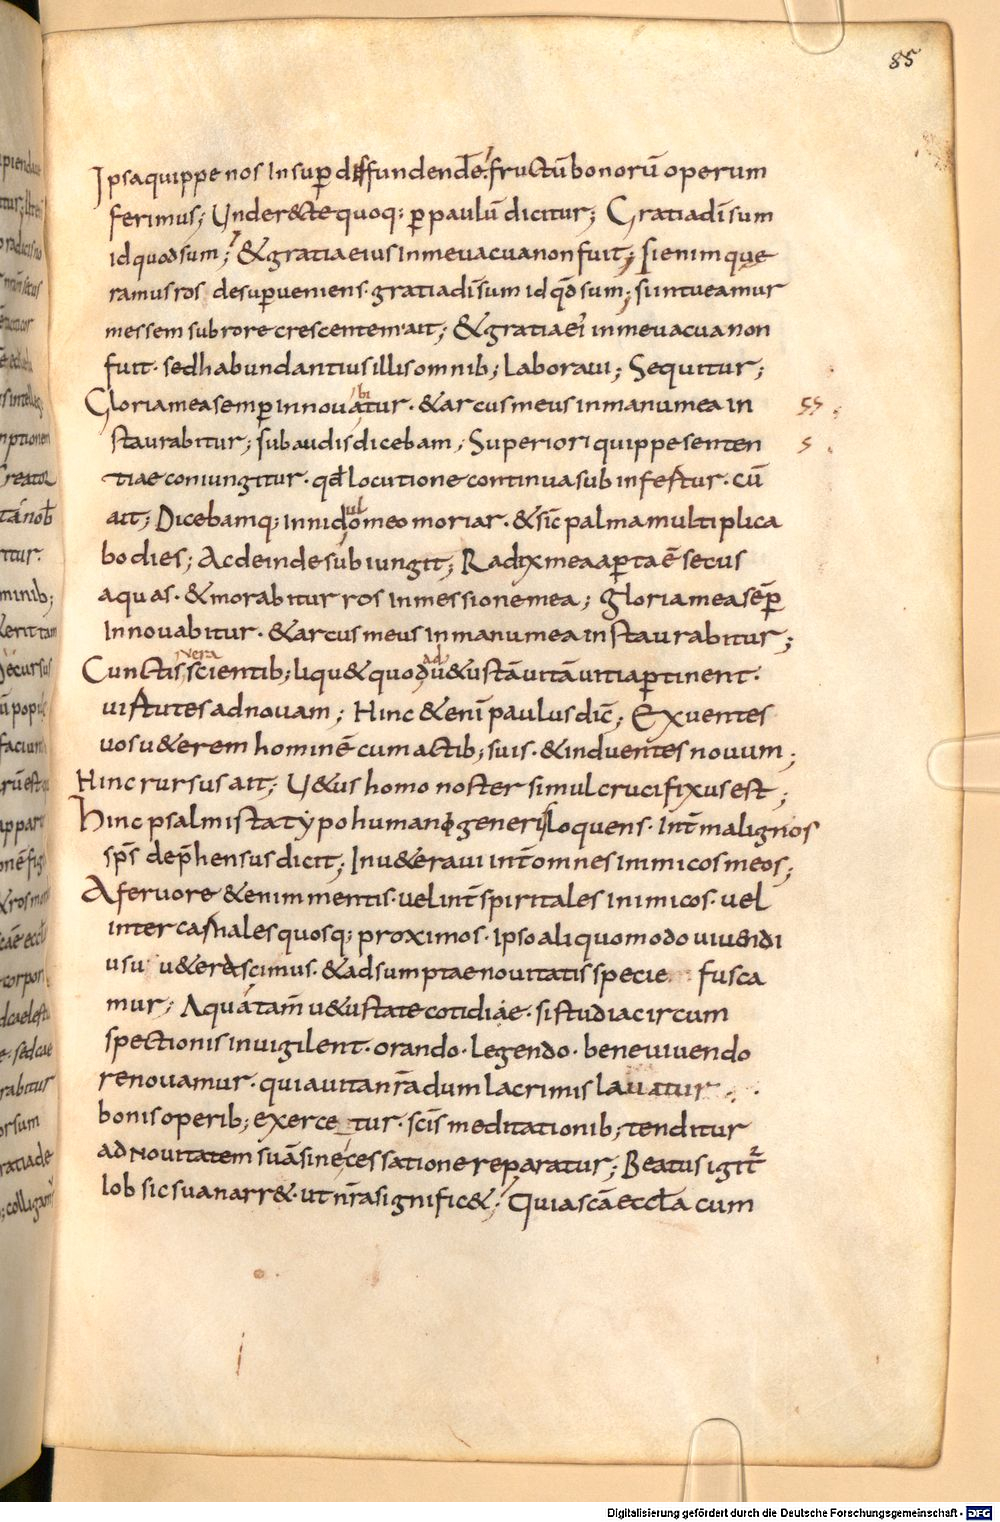 85
Ipsa quippe nos insup diffundendo fructū bonorū operum
ferimus; Unde recte quoq; p paulū dicitur; Gratia dī sum
id quod sum; & gratia eius in me vacua non fuit; Si enim que
ramus ros desup veniens· gratia dī sum id qđ sum; si intueamur
messem sub rore crescentem· ait; & gratia ei' in me vacua non
fuit· sed habundantius illis omnib; laboravi; Sequitur;
Gloria mea semp innovabitur· & arcus meus in manu mea in
staurabitur; subaudis dicebam; Superiori quippe senten
tiae coniungitur· qđ locutione continua sub infertur· cū
ait; Dicebamq; in nidulo meo moriar· & sic̄ palma multiplica
bo dies; Ac deinde subiungit; Radix mea apta ē secus
aquas· & morabitur ros in messione mea; Gloria mea sēp
innovabitur· & arcus meus in manu mea instaurabitur;
Cunctis vera scientib; liqu& quod ad v&ustā vitā vitia ptinent·
virtutes ad novam; Hinc &enī paulus dic̄; Exuentes
vos v&erem hominē cum actib; suis· & induentes novum;
Hinc rursus ait; V&us homo noster simul crucifixus est;
Hinc psalmista typo humani generis loquens· int̄ malignos
sp̄s dep̄hensus dicit; Inv&eravi int̄ omnes inimicos meos;
A fervore &enim mentis· vel int̄ spiritales inimicos· vel
inter carnales quosq; proximos· ipso aliquomodo vivendi
usu v&erascimus· & adsumptae novitatis specie fusca
mur; A qua tam̄ v&ustate cotidiae· si studia circum
spectionis invigilent· orando· legendo· bene vivendo
renovamur· quia vita nr̄a dum lacrimis lavatur
bonis operib; exercetur· scīs meditationib; tenditur
ad novitatem suā sine cessatione reparatur; Beatus igit̄
Iob sic sua narr&· ut nr̄a signific&; Quia scā eccl̄a cum
Digitalisierung gefördert durch die Deutsche Forschungsgemeinschaft - DFG